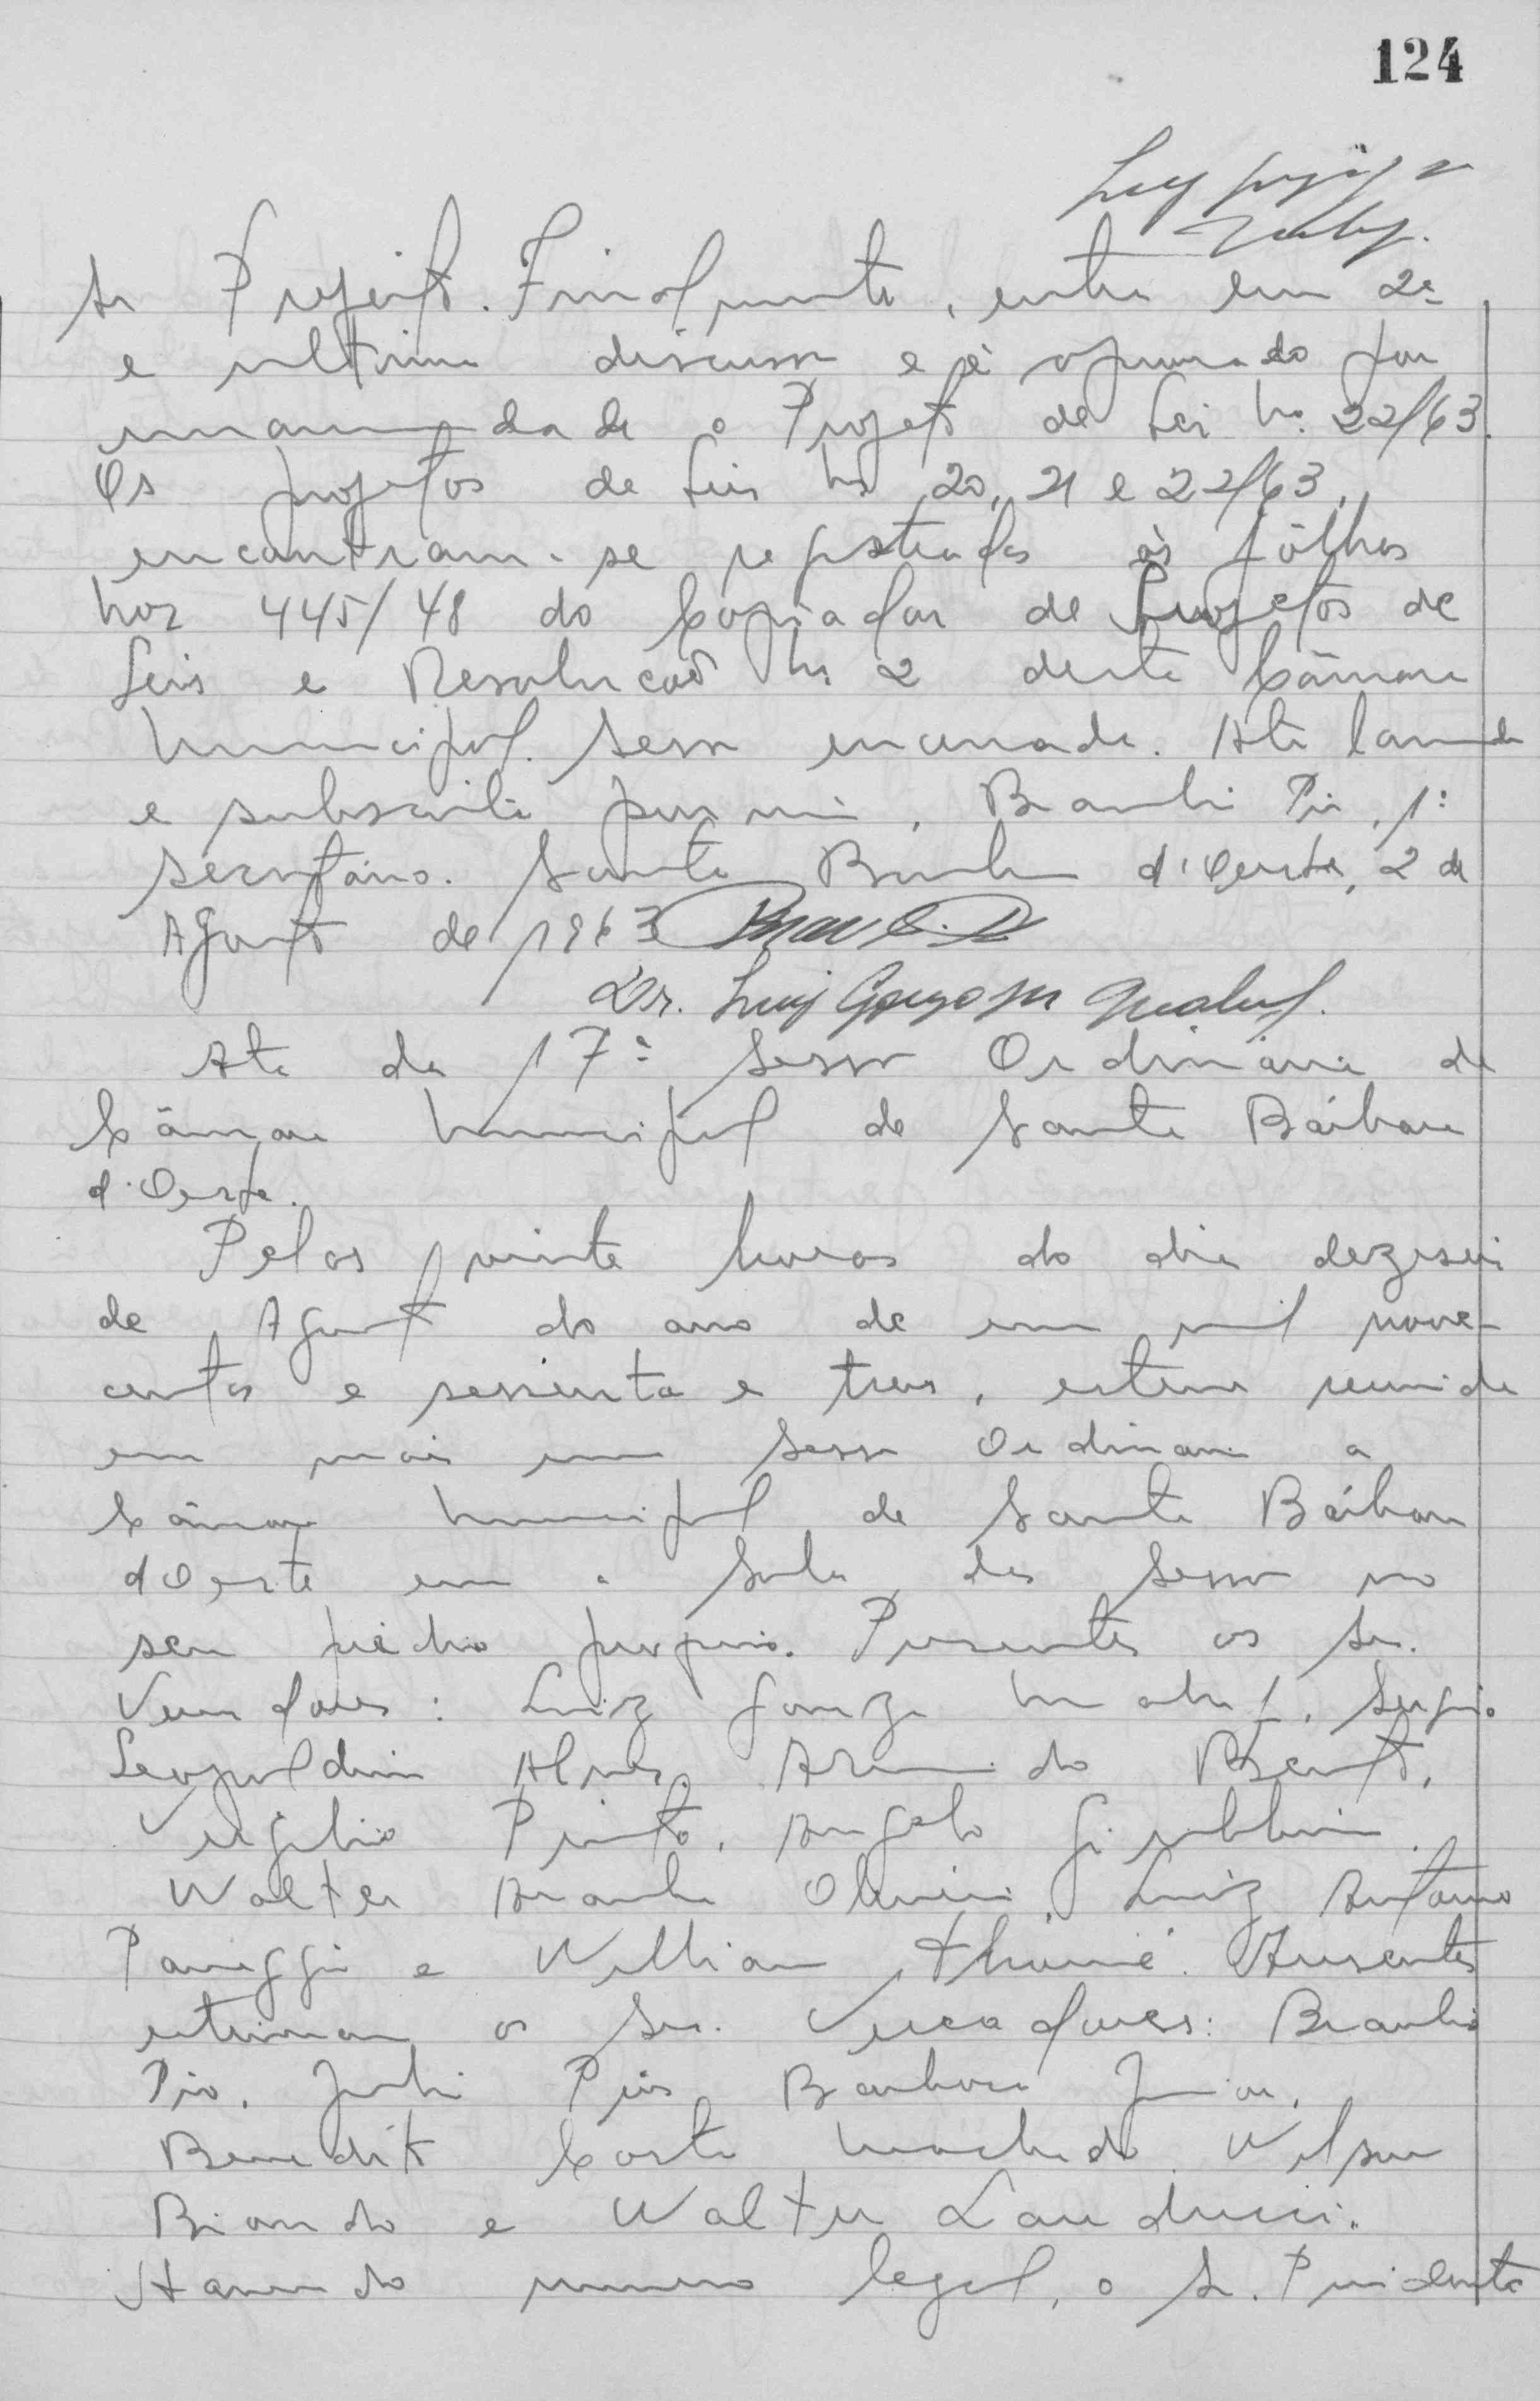 124
Sr Projeto. Finalmente, entra em 2ª
e ultima discussão e é aprovado por
unanimidade o Projeto de Lei no. 22/63.
Os projetos de Leis nos 20, 21 e 22/63,
encontram-se registrados às fôlhas
nos 445/48 do Copiador de Projetos de
Leis e Resolução no. 2 desta Câmara
Municipal. Sessão encerrada. Ata lavrada
e subscrita por mim, Braulio Pio, 1º
secretário. Santa Barbara d'Oeste, 2 de
Agosto de 1963
Dr. Luiz Gonzaga
Ata da 17ª Sessão Ordinária da
Câmara Municipal de Santa Bárbara
d'Oeste.
Pelas vinte horas do dia dezeseis
de Agosto do ano de um mil nove-
centos e sessenta e tres, esteve reunida
em mais uma Sessão Ordinaria a
Câmara Municipal de Santa Bárbara
dOeste em a Sala das Sessões no
seu prédio proprio. Presentes os Srs.
Vereadores: Luiz Gonzaga, Sergio
Leopoldino Alves, Bento,
Virgilio Pinto, Angelo Giubbina,
Walter Araujo Oliveira, Luiz Antonio
Paneggio e Willian Thomé. Ausentes
estiveram os Srs. Vereadores: Braulio
Pio, Julio Pires Barbosa Junior,
Benedito Costa Machado, Wilson
Biondo e Walter Landucci.
Havendo numero legal, o Sr. Presidente